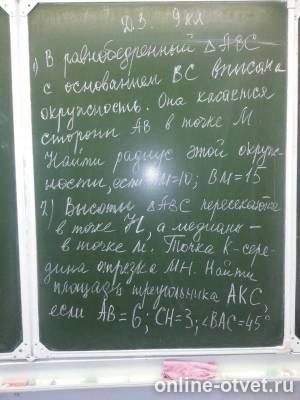 Д.З. 9кл
1) В равнобедренный △ABC
с основанием BC вписана
окружность. Она касается
стороны AB в точке M.
Найти радиус этой окруж-
ности, если AM=10; BM=15
2) Высоты △ABC пересекаются
в точке H, а медианы –
в точке M. Точка K-сере-
дина отрезка MH. Найти
площадь треугольника AKC,
если AB=6; CH=3; ∠BAC=45°
online-otvet.ru